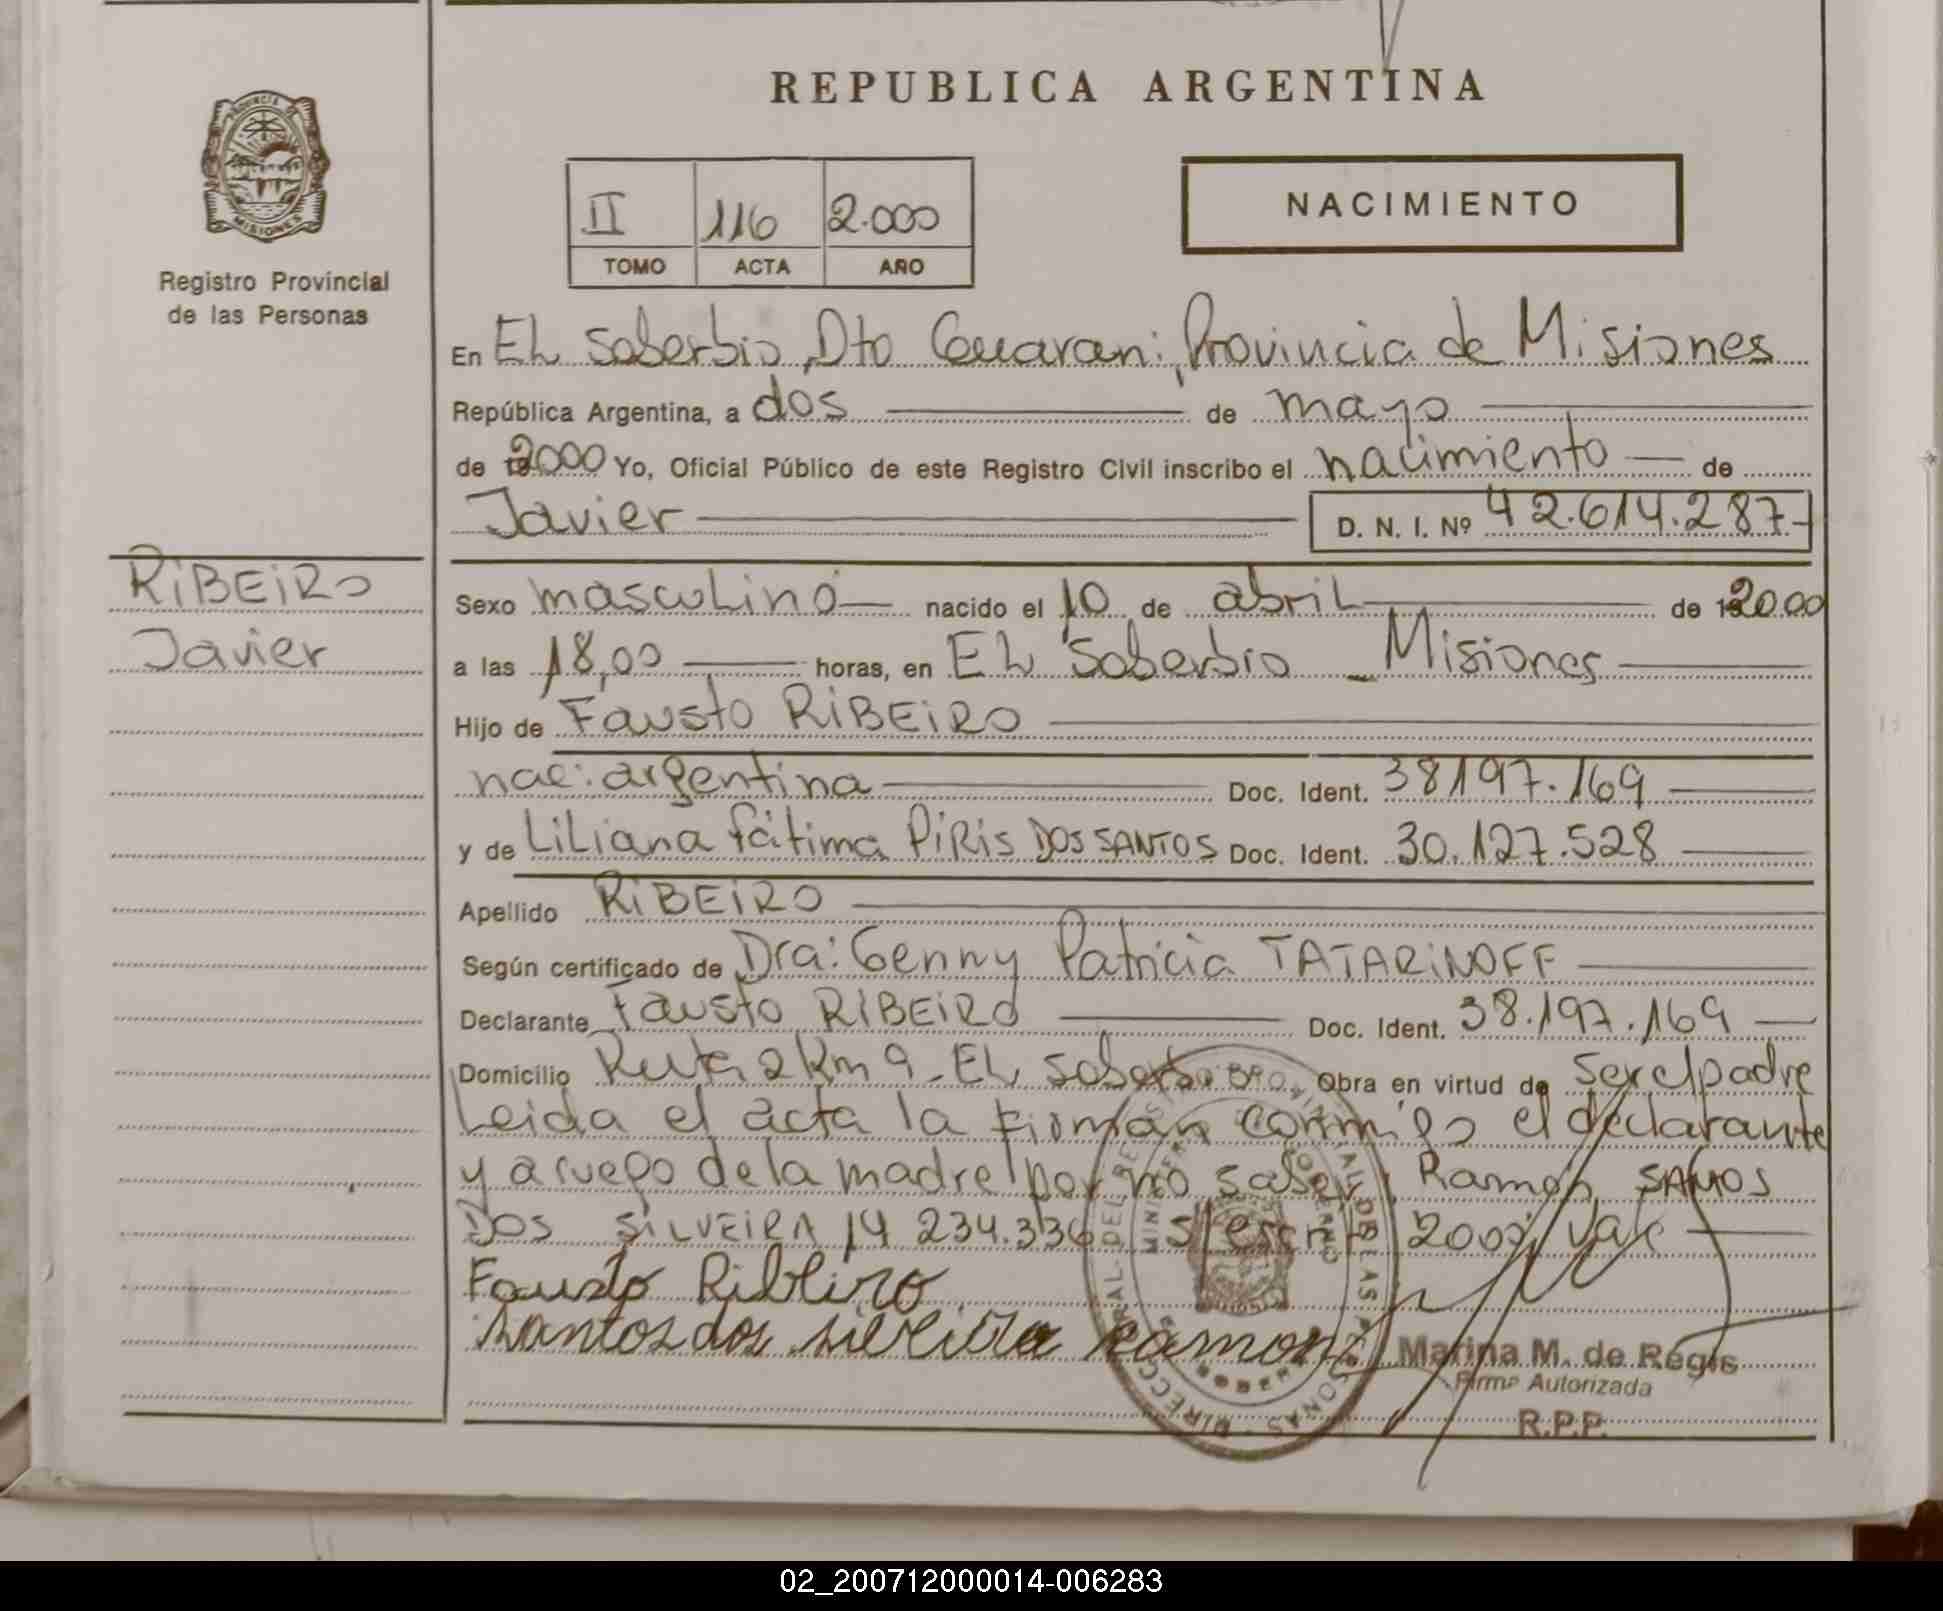 REPUBLICA ARGENTINA
PROVINCIA DE
MISIONES
Registro Provincial
de las Personas
II 116 2.000
TOMO ACTA AÑO
NACIMIENTO
En EL Soberbio, Dto Guarani, Provincia de Misiones
República Argentina, a dos de mayo
de 2000 Yo, Oficial Público de este Registro Civil inscribo el nacimiento de
Javier D. N. I. Nº 42.614.287
RIBEIRO
Javier
Sexo masculino nacido el 10 de abril de 2000
a las 18,00 horas, en EL Soberbio - Misiones
Hijo de Fausto RIBEIRO
nac: argentina Doc. Ident. 38197.169
y de Liliana Fátima PIRIS DOS SANTOS Doc. Ident. 30.127.528
Apellido RIBEIRO
Según certificado de Dra: Genny Patricia TATARINOFF
Declarante Fausto RIBEIRO Doc. Ident. 38.197.169
Domicilio Ruta 2 Km 9 - EL Soberbio Obra en virtud de ser el padre
Leida el acta la firman conmigo el declarante
y a ruego de la madre por no saber, Ramon SANTOS
DOS SILVEIRA 14 234.336 2000 Vale
Fausto Ribeiro
Santos dos silveira Ramon
Marina M. de Regis
Firma Autorizada
R.P.P.
02_200712000014-006283